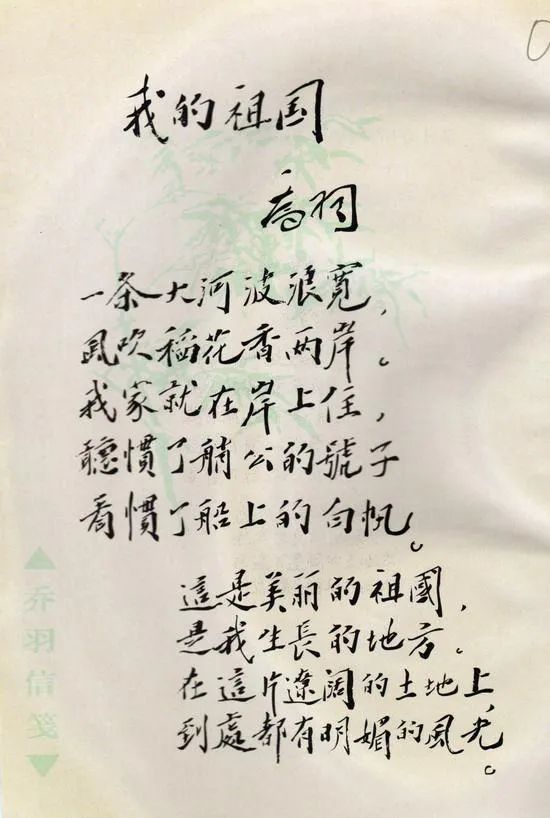 我的祖国
乔羽
一条大河波浪寬,
風吹稻花香两岸。
我家就在岸上住,
聽慣了艄公的號子
看慣了船上的白帆。
這是美丽的祖國,
是我生長的地方.
在這片遼阔的土地上,
到處都有明媚的風光。
乔羽信笺